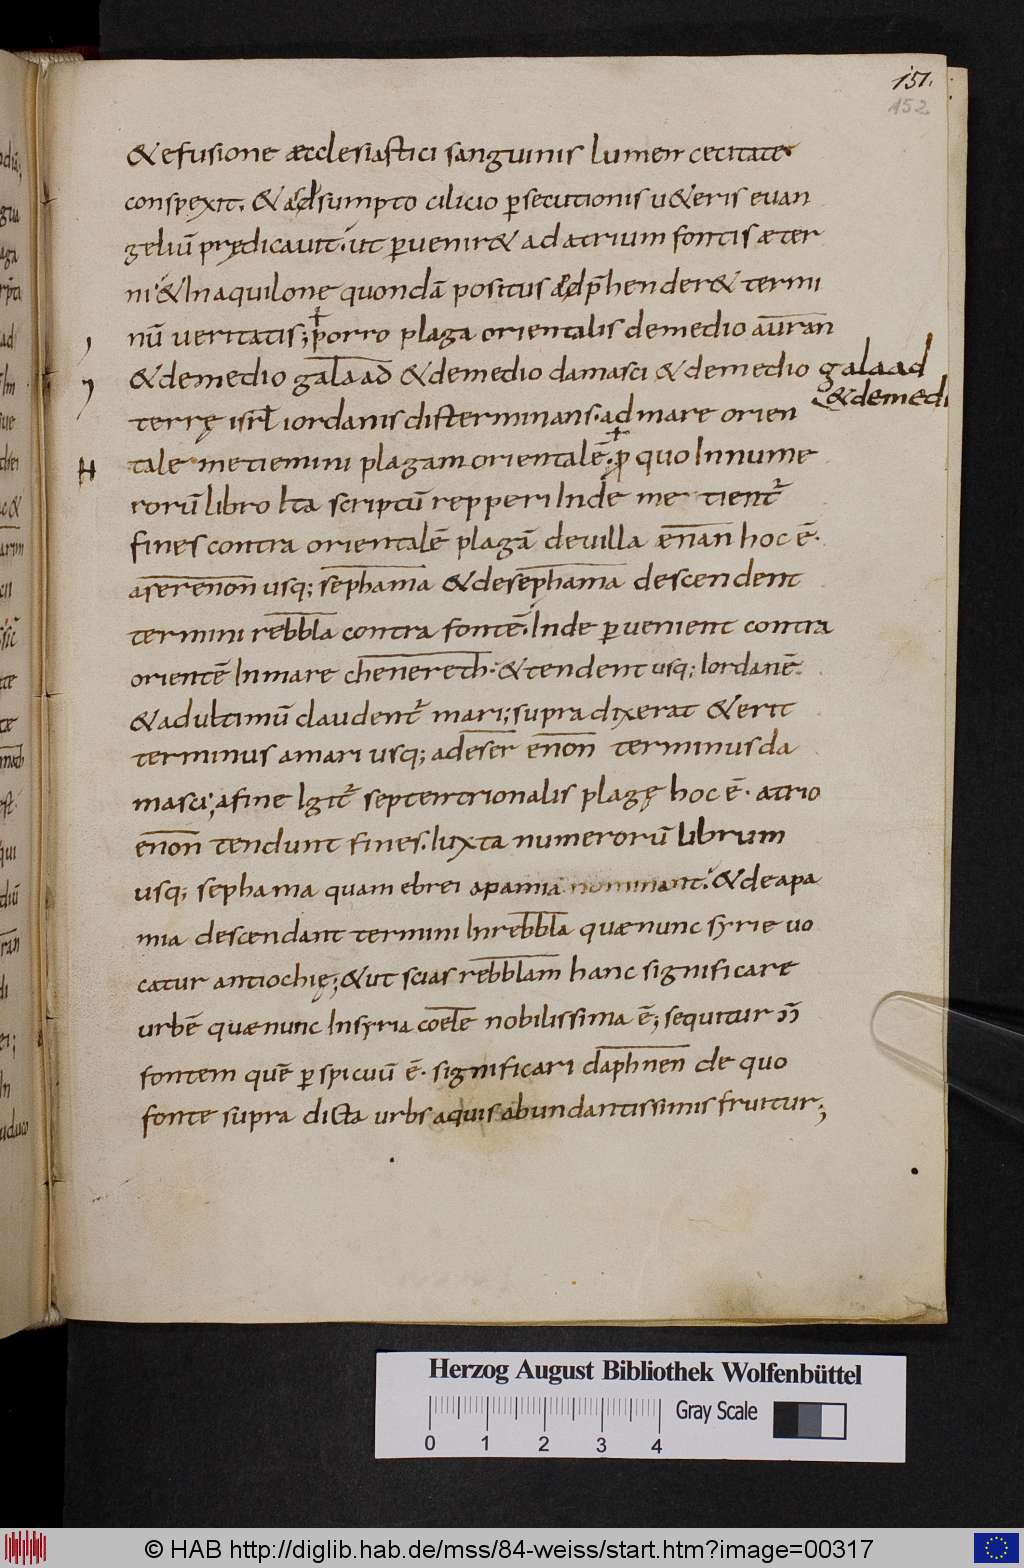 151.
152
& efusione æcclesiastici sanguinis lumen cecitate
conspexit. & adsumpto cilicio ꝑsecutionis u&eris euan
geliū prędicauit. ut ꝑuenir& ad atrium fontis æter
ni & In aquilone quondā positus adp̄hender& termi
nū ueritatis; porro plaga orientalis demedio auran
& demedio galaad & demedio damasci & demedio galaad
& demedi
terrę isrł iordanis disterminans. ad mare orien
tale metiemini plagam orientalē. ꝓ quo In nume
rorū libro Ita scriptū repperi Inde me tient᷑
fines contra orientalē plagā deuilla ænan hoc ē.
aserenon usq; sephama & desephama descendent
termini rebbla contra fontē. Inde ꝑuenient contra
orientē In mare chenereth. & tendent usq; Iordanē.
& adultimū claudent᷑ mari; supra dixerat & erit
terminus amari usq; adeser enon terminus da
masci; afine Igit᷑ septentrionalis plagę hoc ē. atrio
enon tendunt fines. Iuxta numerorū librum
usq; sephama quam ebrei apamia nominant. & deapa
mia descendant termini In rebbla quænunc syrie uo
catur antiochię; & ut scias rebblam hanc significare
urbē quænunc In syria coele nobilissima ē; sequitur
fontem quē ꝑspicuū ē. significari daphnen de quo
fonte supra dicta urbs aquis abundantissimis fruitur;
Herzog August Bibliothek Wolfenbüttel
Gray Scale
0 1 2 3 4
© HAB http://diglib.hab.de/mss/84-weiss/start.htm?image=00317